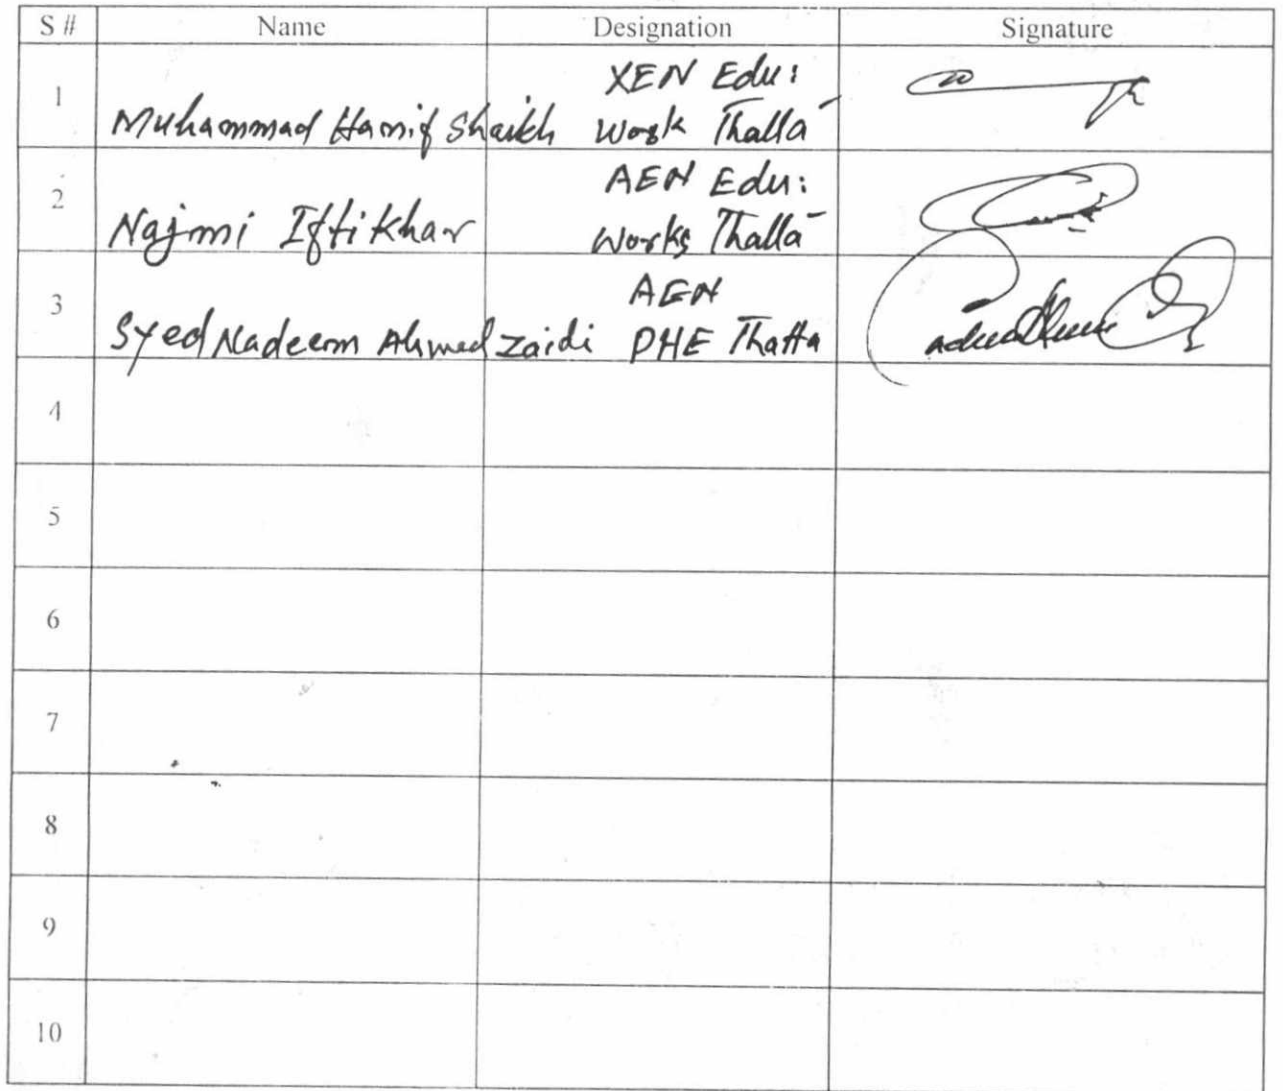 S # Name Designation Signature
1 Muhammad Hanif Shaikh XEN Edu:
Work Thatta
2 Najmi Iftikhar AEN Edu:
Works Thatta
3 Syed Nadeem Ahmed Zaidi AEN
PHE Thatta
4
5
6
7
8
9
10